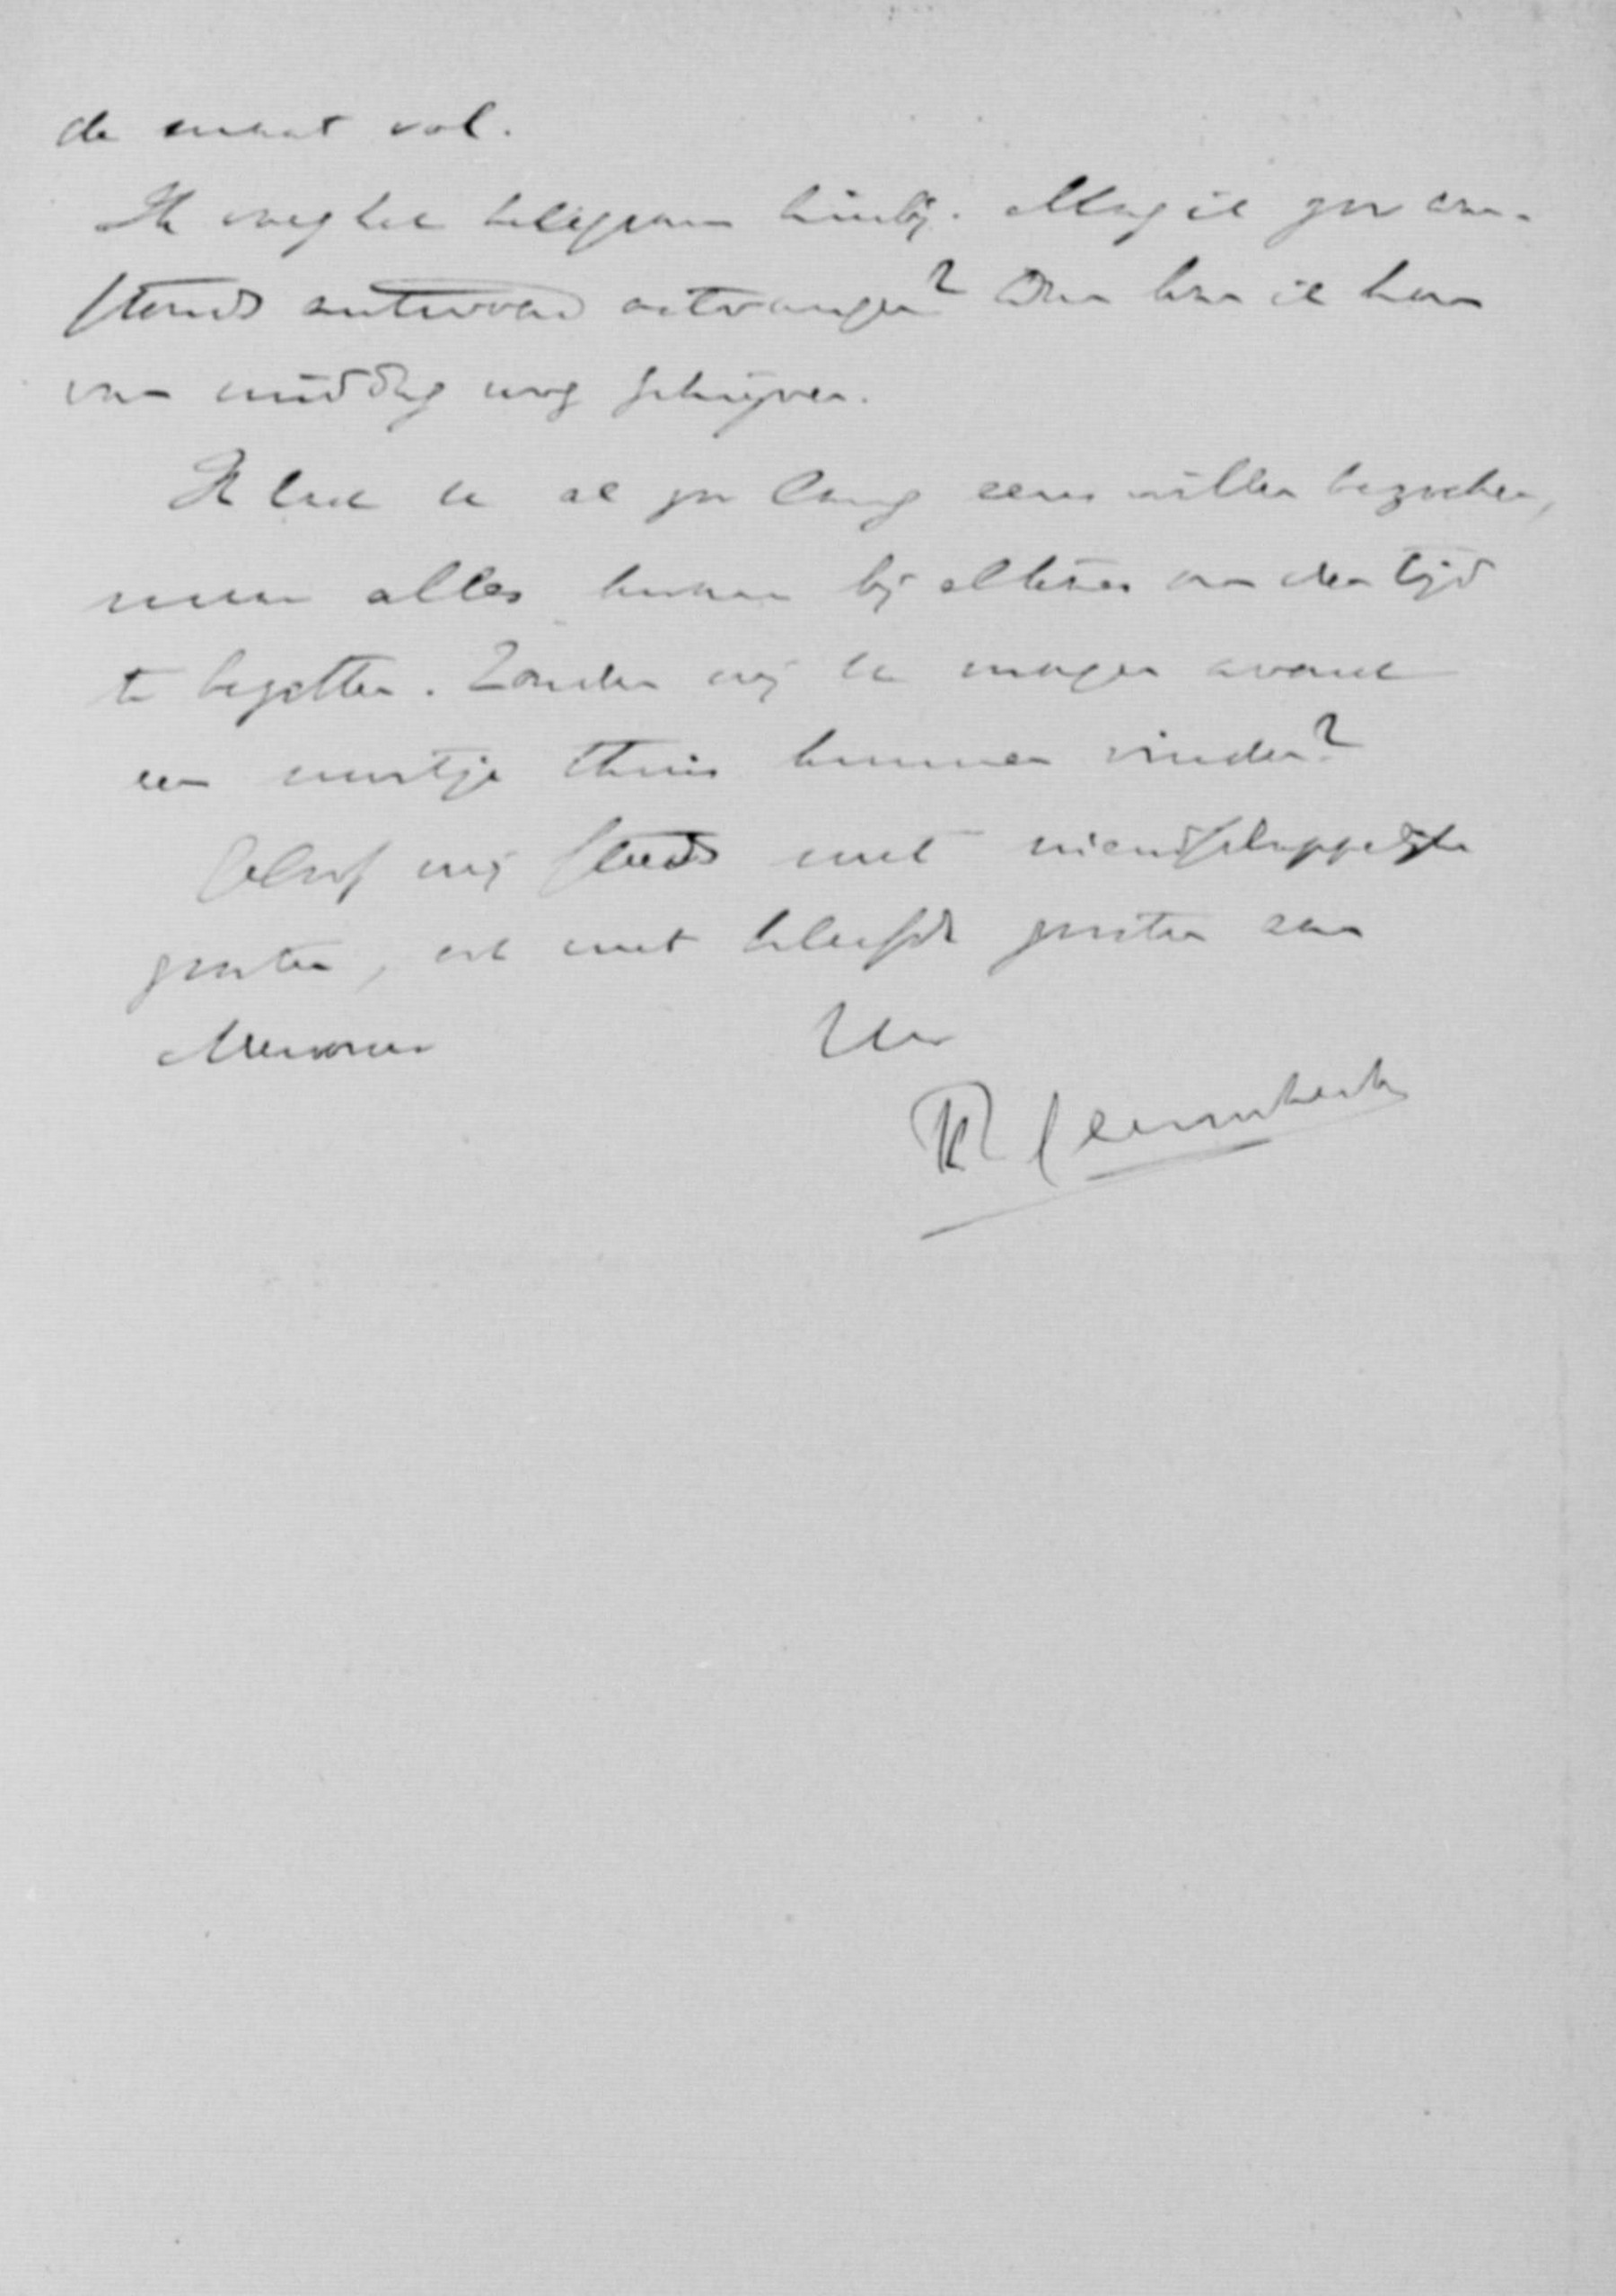 de maat vol.
Ik voeg het telegram hierbij. Mag ik per om-
staands antwoord ontvangen? Dan kan ik hem
van middag nog schrijven.
Ik had u al zoo lang eens willen bezoeken,
maar alles kwam bij elkaar om den tijd
te bezetten. Zouden wij u morgen avond
een uurtje thuis kunnen vinden?
Geloof mij steeds met vriendschappelijke
groeten, ook met beleefde groeten aan
Mevrouw
Uw